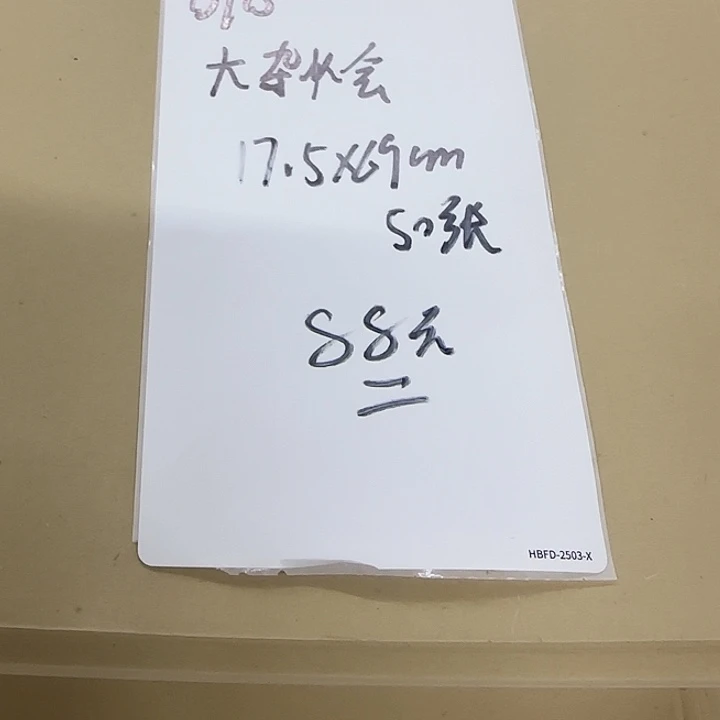 大杂伙会
17.5X69cm
50张
88元
HBFD-2503-X